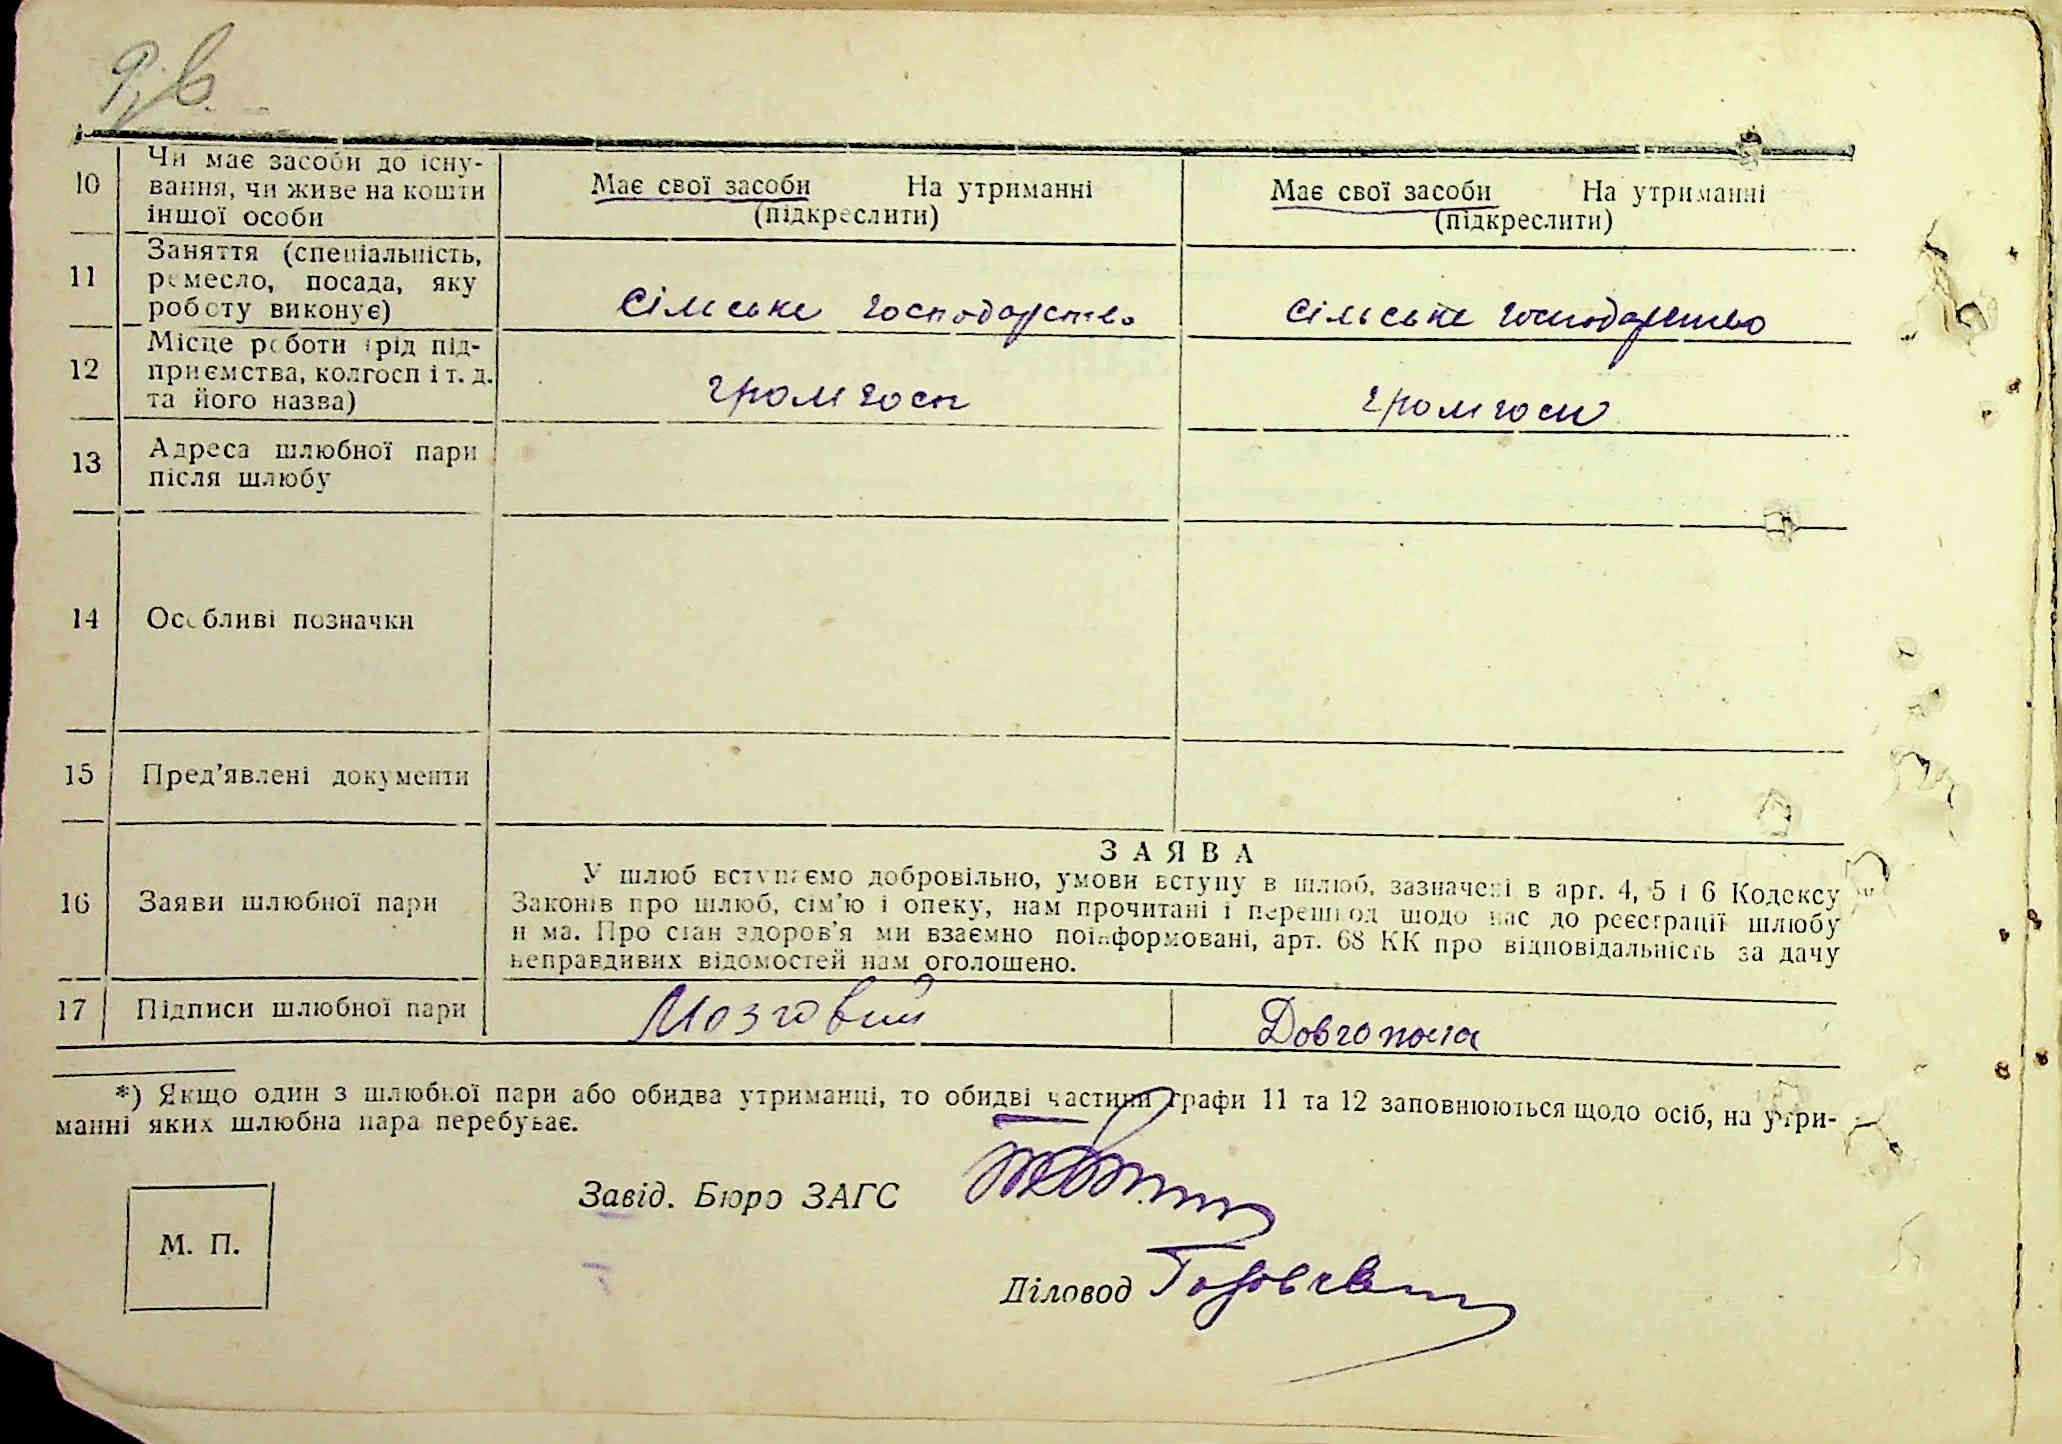 10 Чи має засоби до існу-
вання, чи живе на кошти
іншої особи
Має свої засоби На утриманні
(підкреслити)
Має свої засоби На утриманні
(підкреслити)
11 Заняття (спеціальність,
ремесло, посада, яку
роботу виконує)
сільське господарство
сільське господарство
12 Місце роботи (рід під-
приємства, колгосп і т. д.
та його назва)
громгосп
громгосп
13 Адреса шлюбної пари
після шлюбу
14 Особливі позначки
15 Пред’явлені документи
16 Заяви шлюбної пари
ЗАЯВА
У шлюб вступаємо добровільно, умови вступу в шлюб, зазначені в арт. 4, 5 і 6 Кодексу
Законів про шлюб, сім’ю і опеку, нам прочитані і перешкод щодо нас до реєстрації шлюбу
нема. Про стан здоров’я ми взаємно поінформовані, арт. 68 КК про відповідальність за дачу
неправдивих відомостей нам оголошено.
17 Підписи шлюбної пари
Мозговий
Довгопола
*) Якщо один з шлюбної пари або обидва утриманці, то обидві частини графи 11 та 12 заповнюються щодо осіб, на утри-
манні яких шлюбна пара перебуває.
Завід. Бюро ЗАГС
Діловод
М. П.